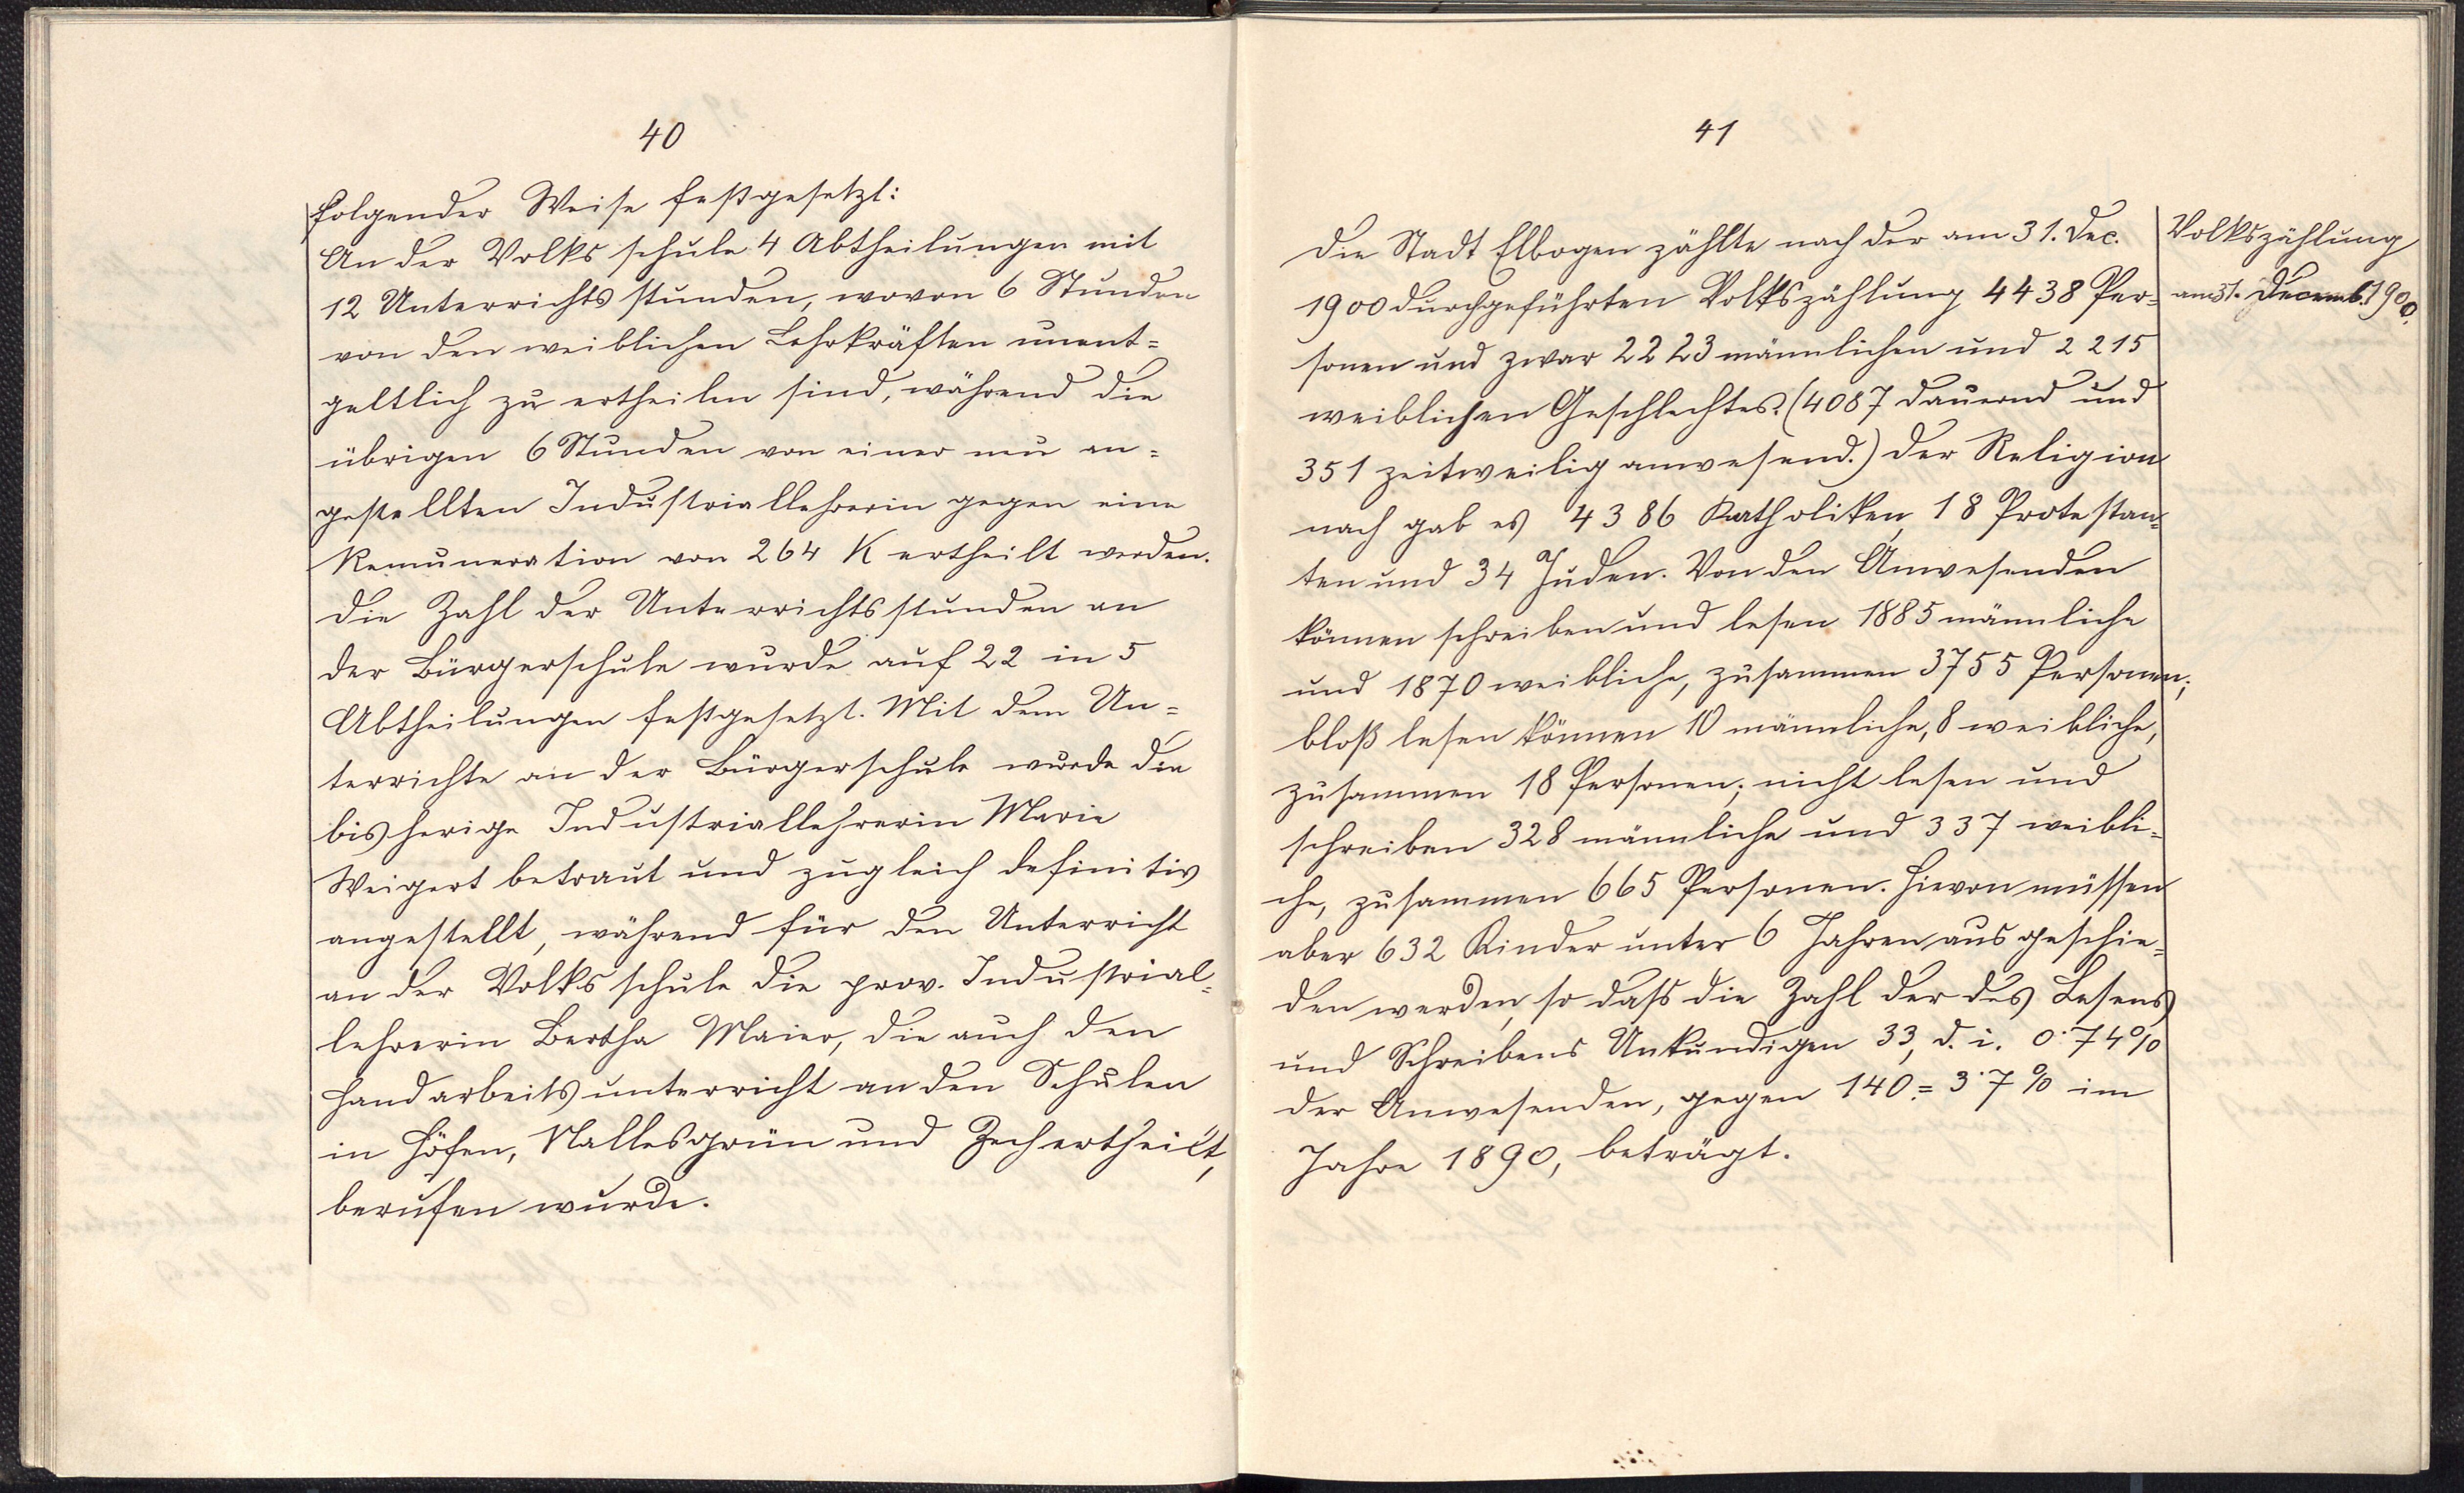 40
folgender Weise festgesetzt:
An der Volksschule 4 Abtheilungen mit
12 Unterrichtsstunden, wovon 6 Stunden
von den weiblichen Lehrkräften unent-
geltlich zu ertheilen sind, während die
übrigen 6 Stunden von einer neu an-
gestellten Industriallehrerin gegen eine
Remuneration von 264 K ertheilt werden.
Die Zahl der Unterrichtsstunden an
der Bürgerschule wurde auf 22 in 5
Abtheilungen festgesetzt. Mit dem Un-
terrichte an der Bürgerschule wurde die
bisherige Industriallehrerin Marie
Weigert betraut und zugleich definitiv
angestellt, während für den Unterricht
an der Volksschule die prov. Industrial-
lehrerin Bertha Maier, die auch den
Handarbeitsunterricht an den Schulen
in Höfen, Nallesgrün und Zech ertheilt,
berufen wurde.
41
Die Stadt Elbogen zählte nach der am 31. Dec.
1900 durchgeführten Volkszählung 4438 Per-
sonen und zwar 2223 männlichen und 2215
weiblichen Geschlechtes. (4087 dauernd und
351 zeitweilig anwesend.) Der Religion
nach gab es 4386 Katholiken, 18 Protestan-
ten und 34 Juden. Von den Anwesenden
können schreiben und lesen 1885 männliche
und 1870 weibliche, zusammen 3755 Personen;
bloß lesen können 10 männliche, 8 weibliche,
zusammen 18 Personen; nicht lesen und
schreiben 328 männliche und 337 weibli-
che, zusammen 665 Personen. Hievon müssen
aber 632 Kinder unter 6 Jahren ausgeschie-
den werden, so dass die Zahl der des Lesens
und Schreibens Unkundigen 33, d. i. 0·74%
der Anwesenden, gegen 140 = 3·7% im
Jahre 1890, beträgt.
Volkszählung
am 31. Decemb. 1900.